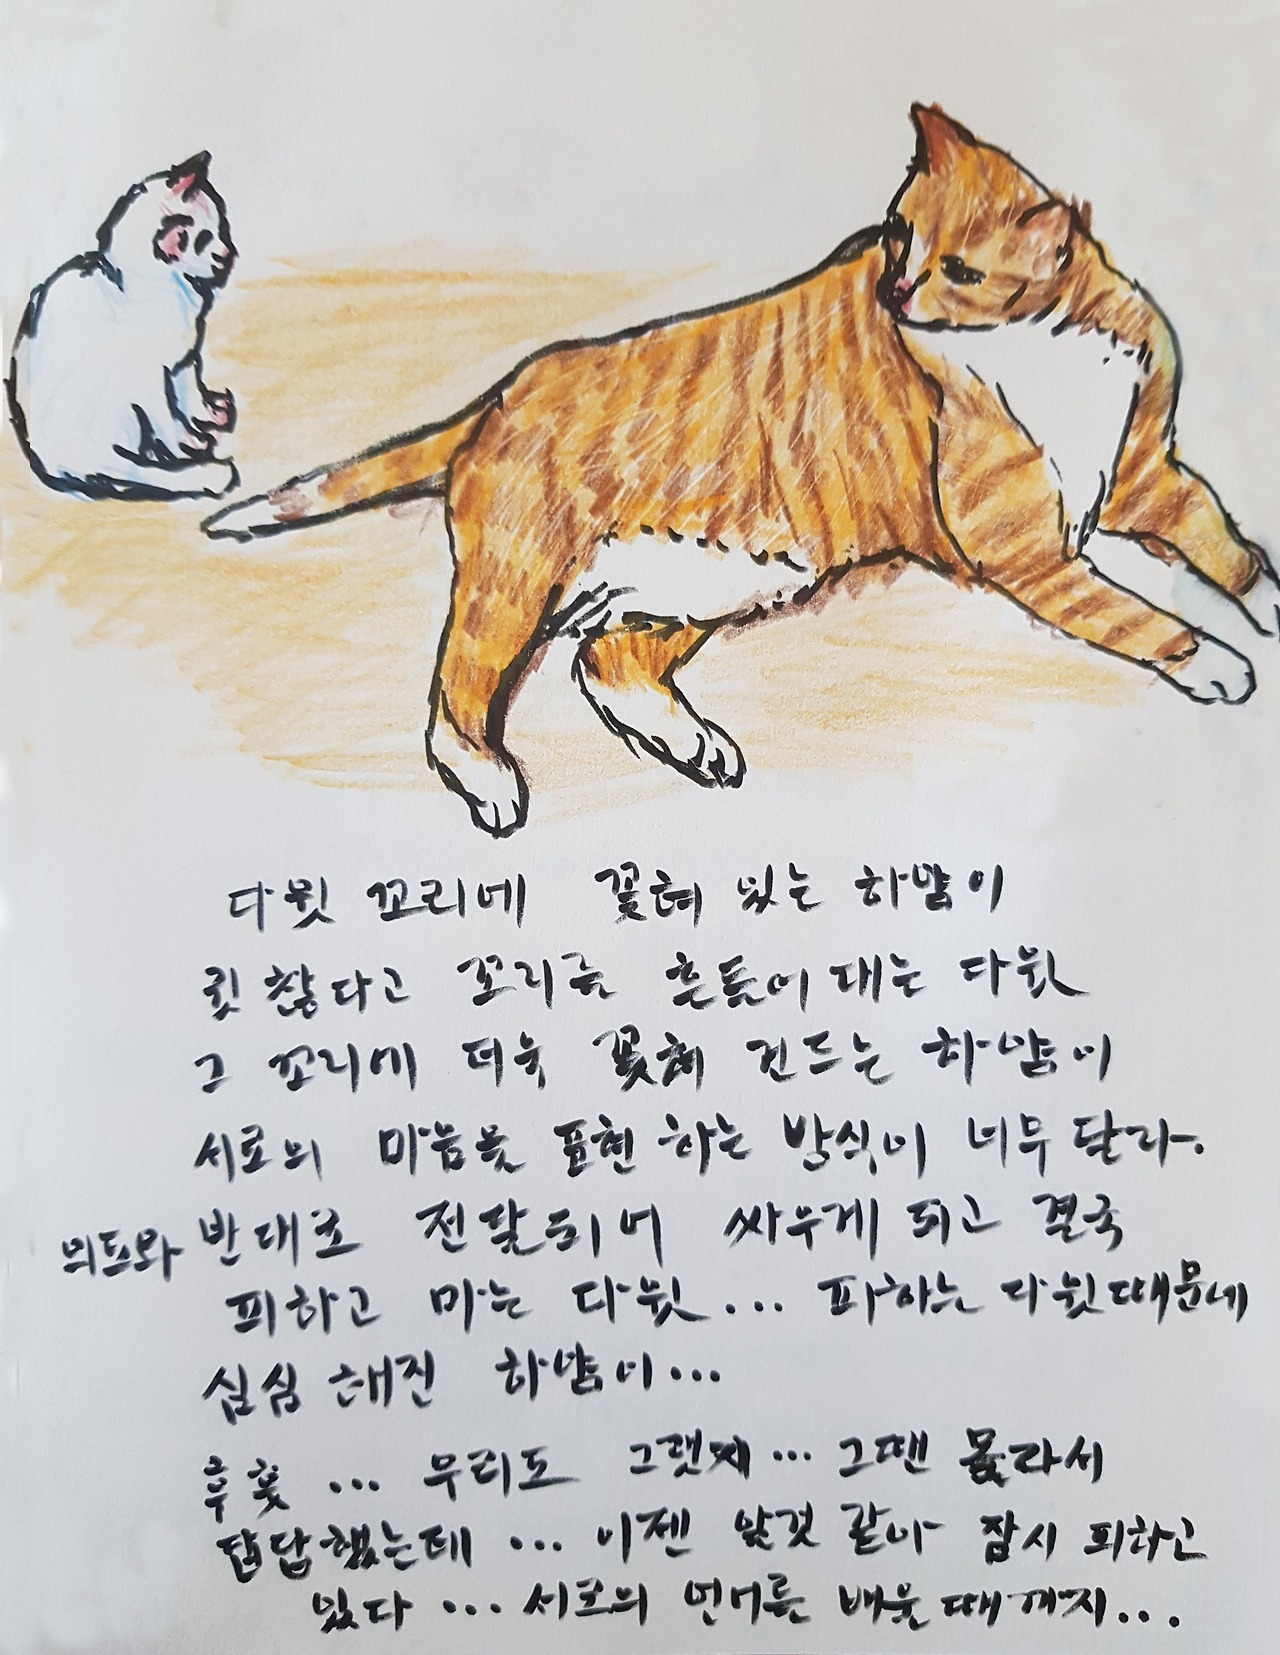 다윗 꼬리에 꽃혀 있는 하얌이
귓찮다고 꼬리를 흔들어 대는 다윗
그 꼬리에 더욱 꽃혀 건드는 하얌이
서로의 마음을 표현 하는 방식이 너무 달라.
의도와 반대로 전달되어 싸우게 되고 결국
피하고 마는 다윗... 피하는 다윗때문에
심심해진 하얌이...
후훗... 우리도 그랬지... 그땐 몰라서
답답했는데... 이젠 알것 같아 잠시 피하고
있다... 서로의 언어를 배울때까지...